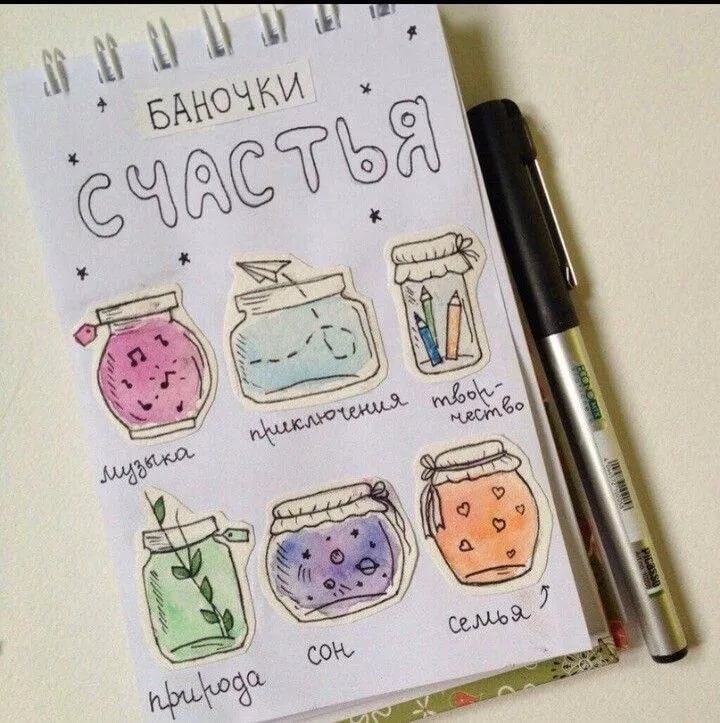 БАНОЧКИ
СЧАСТЬЯ
музыка
приключения
твор-
чество
природа
сон
семья
PICASSO